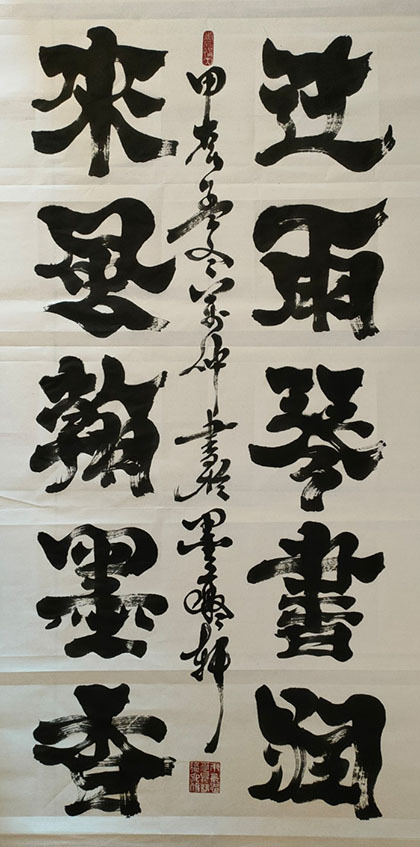 雨琴書潤
來風翰墨香
甲辰孟夏 書於墨 軒